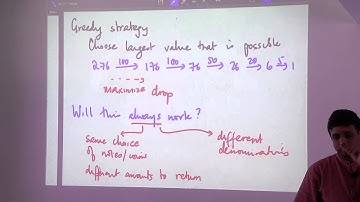 Greedy strategy
Choose largest value that is possible
276 100→ 176 100→ 76 50→ 26 20→ 6 5→ 1
MAXIMIZE drop
Will this always work?
same choice
of notes/coins
different
denominations
different amounts to return